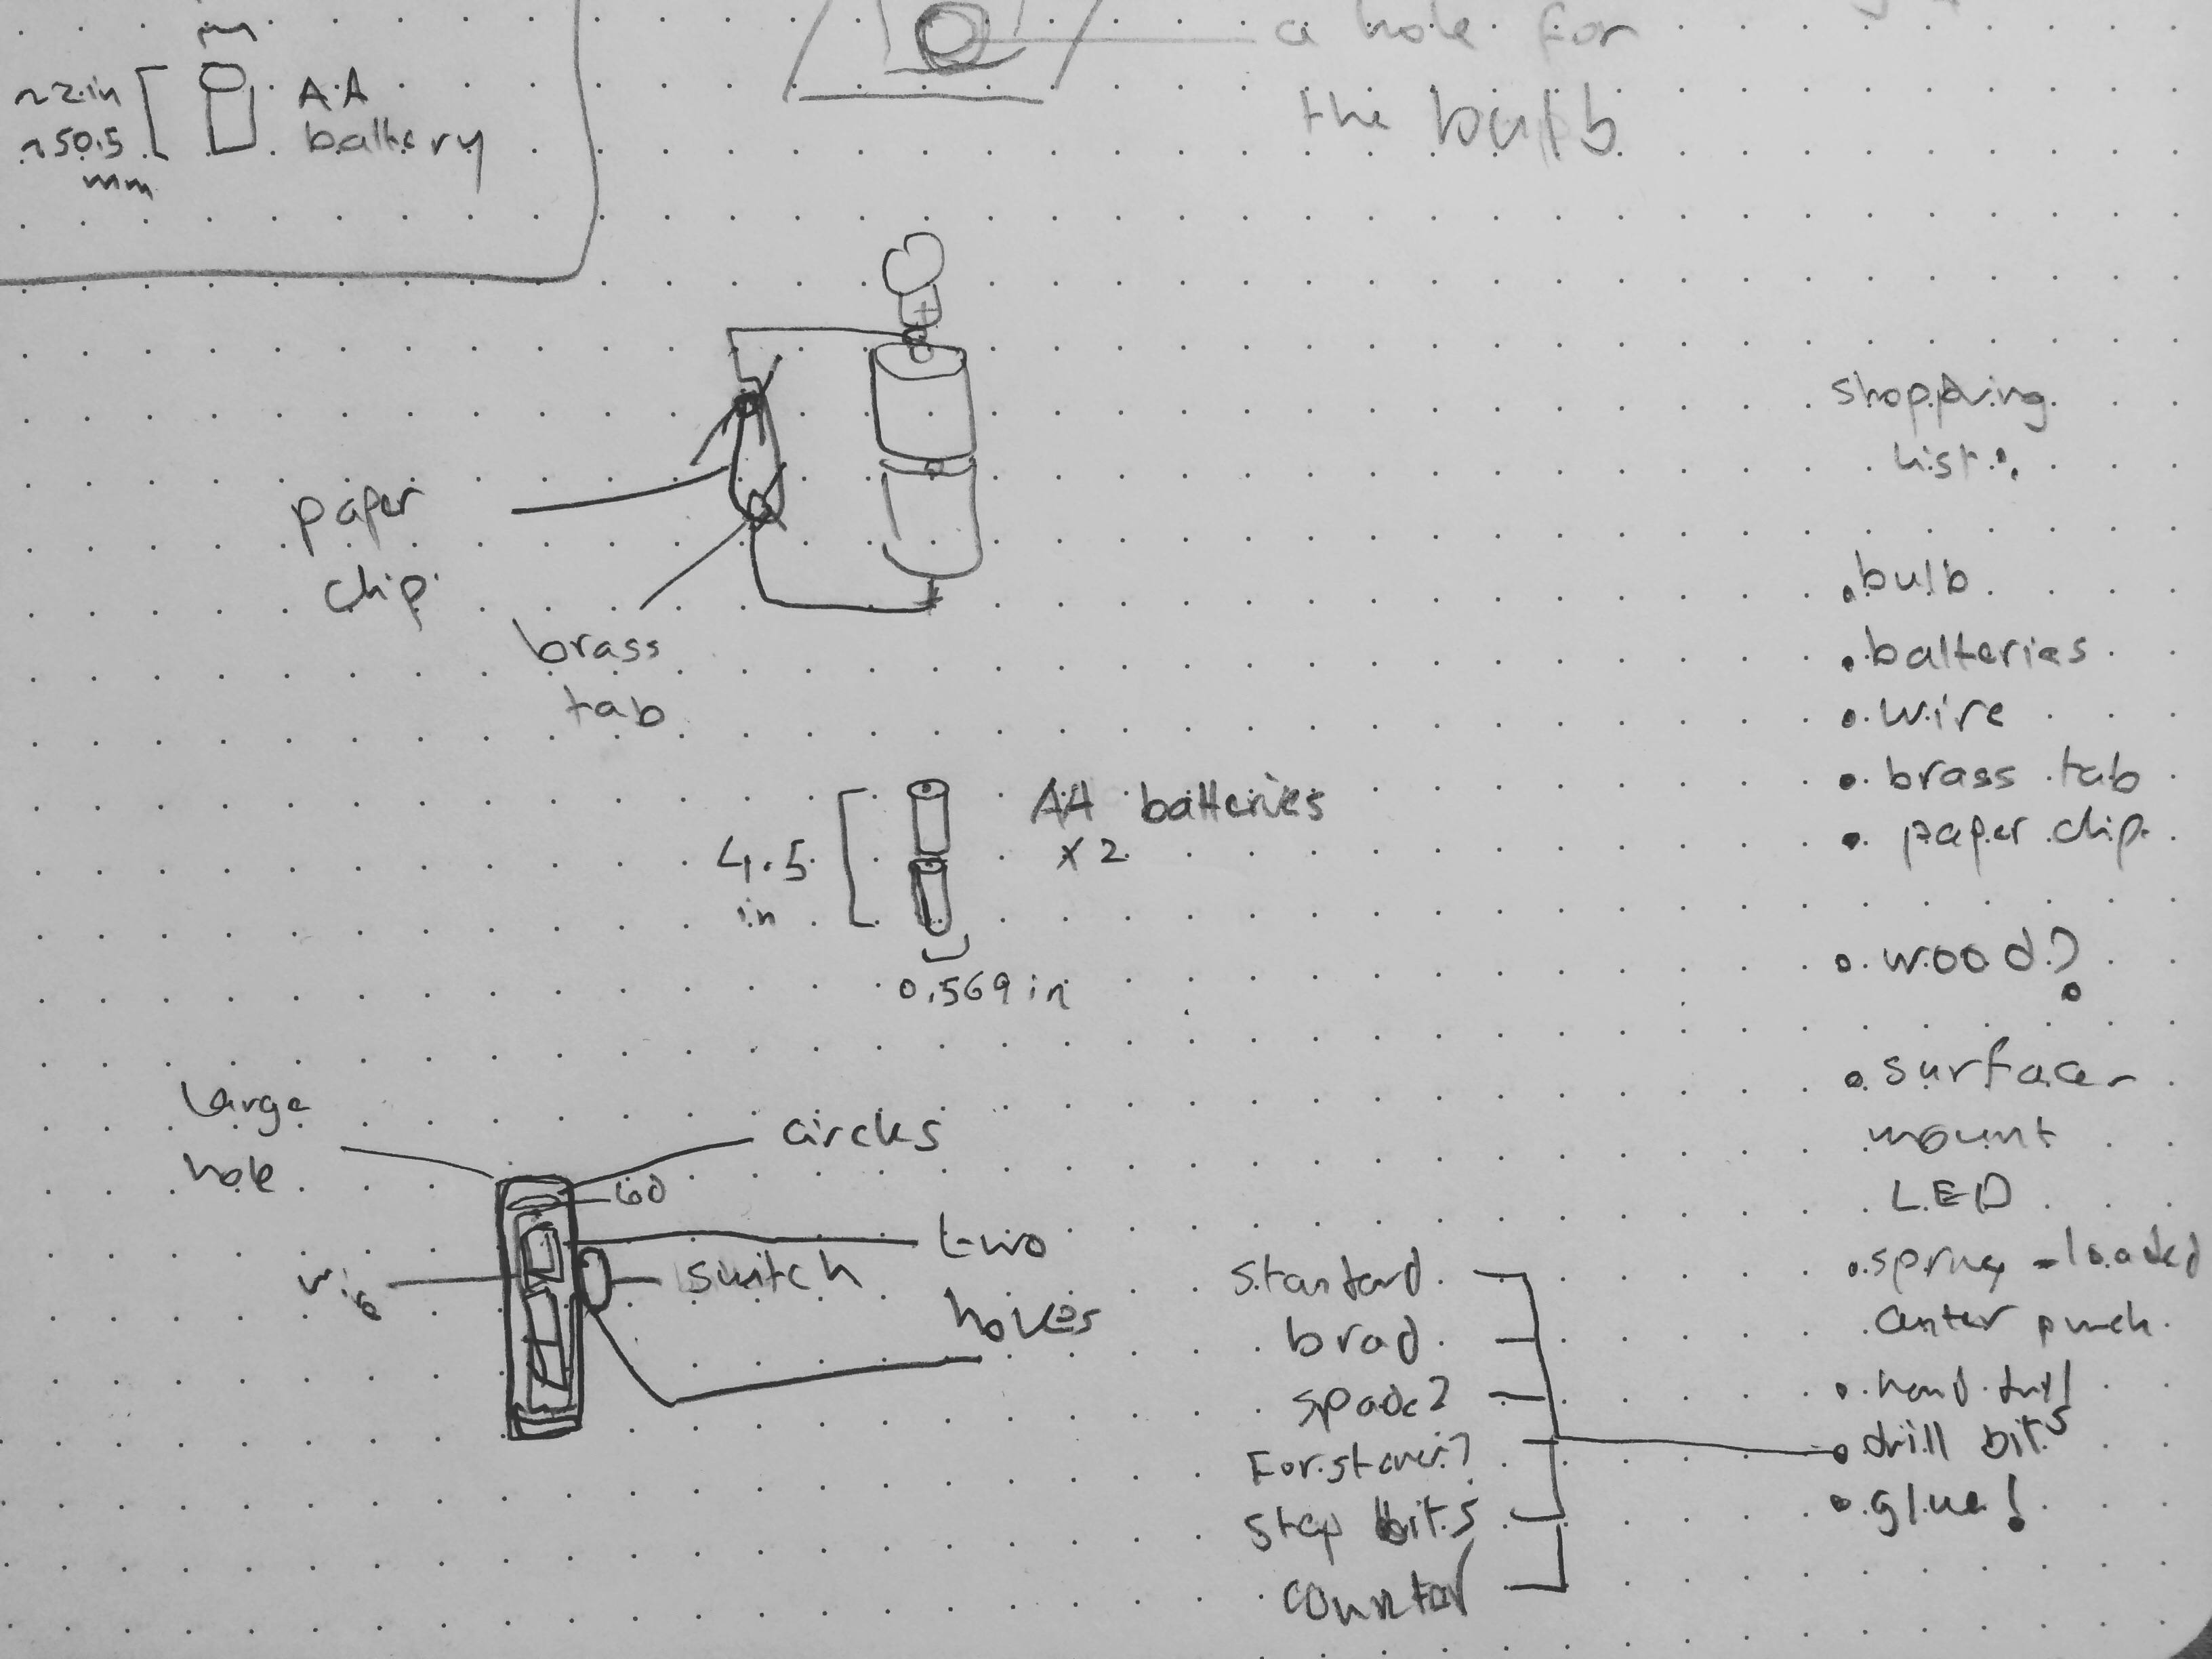 a hole for
the bulb
~2in
~50.5
mm
AA
battery
paper
clip
brass
tab
shopping
list:
bulb
batteries
wire
brass tab
paper clip
wood?
surface-
mount
LED
spring-loaded
center punch
hand drill
drill bits
glue!
AA batteries
x2
4.5
in
0.569 in
large
hole
circles
two
holes
switch
wire
standard
brad
spade?
Forstner?
step bits
counter